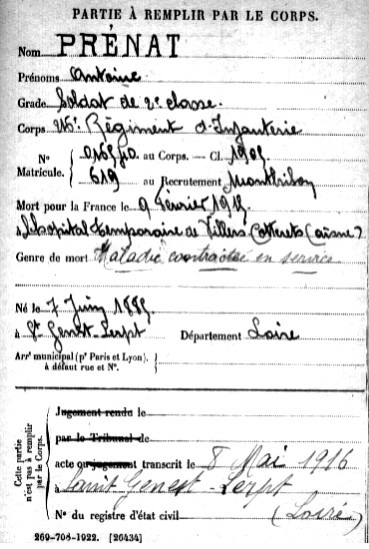 PARTIE À REMPLIR PAR LE CORPS.
Nom PRÉNAT
Prénoms Antoine
Grade Soldat de 2e classe.
Corps 216e Régiment d'Infanterie
N° Matricule. au Corps. — Cl. 1905
619 au Recrutement Montbrison
Mort pour la France le 9 février 1915
à l'hôpital temporaire de Villers Cotterets (Aisne)
Genre de mort Maladie contractée en service
Né le 7 Juin 1885
à St Genest-Lerpt Département Loire
Arrt municipal (pr Paris et Lyon),
à défaut rue et N°.
Cette partie n'est pas à remplir par le Corps.
Jugement rendu le
par le Tribunal de
acte ou jugement transcrit le 8 Mai 1916
à Saint-Genest-Lerpt
N° du registre d'état civil (Loire)
269-708-1922. [26434]